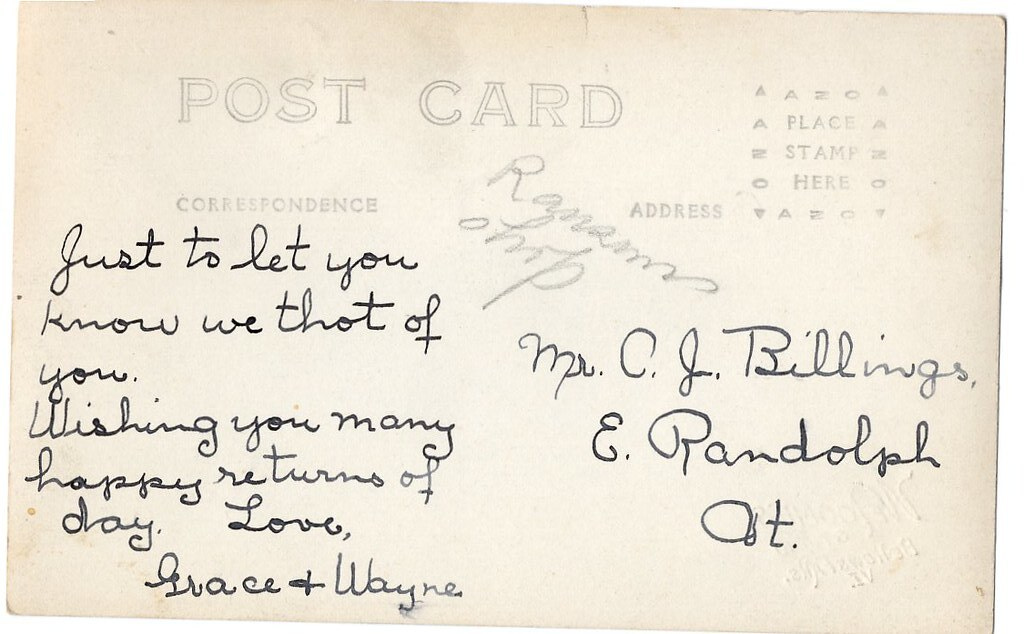 POST CARD
AZO
PLACE
STAMP
HERE
AZO
CORRESPONDENCE
ADDRESS
Just to let you
know we thot of
you.
Wishing you many
happy returns of
day. Love,
Grace & Wayne
Mr. C. J. Billings,
E. Randolph
Vt.